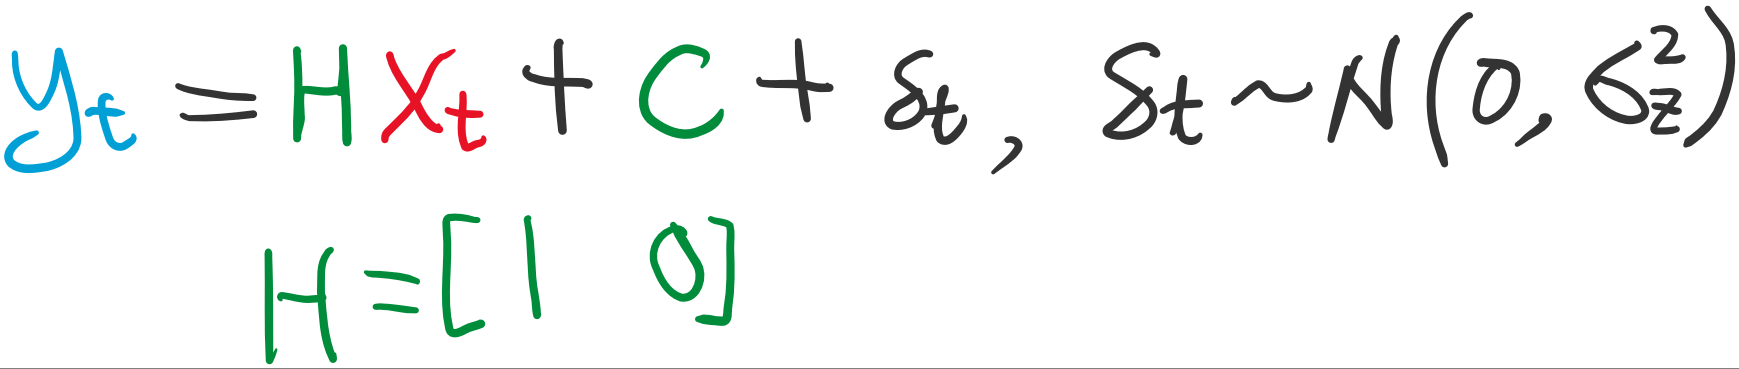 y_t = H X_t + C + δ_t, δ_t ~ N(0, σ_z^2)
H = [1 0]